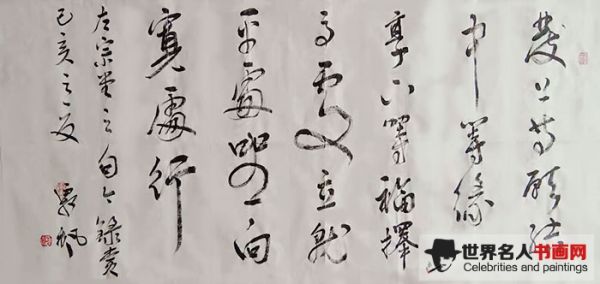 發上等願結
中等緣
享下等福擇
高處立就
平處坐向
寬處行
左宗棠之句
己亥之夏
世界名人书画网
Celebrities and paintings